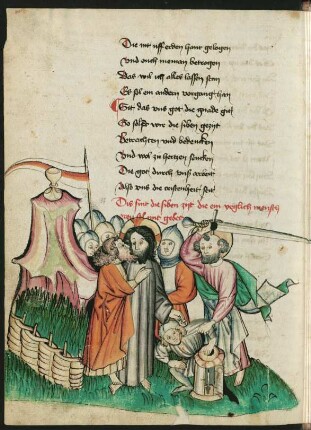 Die nit uff erden hant gelogen
Und ouch nieman betrogen
Das wil ich alles lassen sin
Es sol ein andern vorgang han
Sit das uns got die gnade git
So sölle wir die siben gezit
Betrachten und bedencken
Und wol zu hertzen sencken
Die got durch uns
Also uns die cristenheit seit
Dis sint die siben zit die ein yeglich mensch